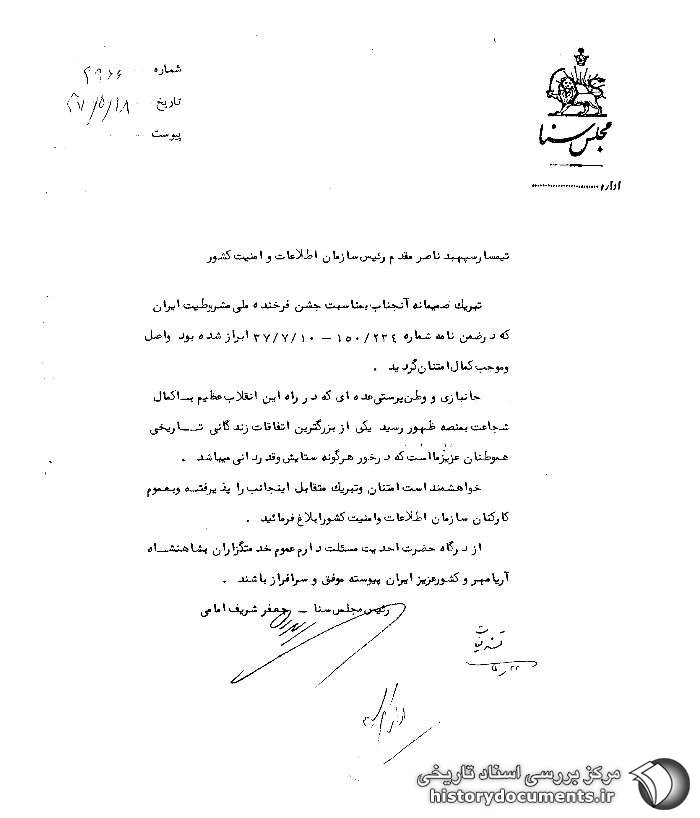 مجلس سنا
اداره
شماره
تاریخ ۳۷/۵/۱۸
پیوست
تیمسار سپهبد ناصر مقدم رئیس سازمان اطلاعات و امنیت کشور
تبریک صمیمانه آنجناب بمناسبت جشن فرخنده ملی مشروطیت ایران
که در ضمن نامه شماره ۱۵۰/۲۳۴ – ۳۷/۷/۱۰ ابراز شده بود واصل
و موجب کمال امتنان گردید .
جانبازی و وطن پرستی عده ای که در راه این انقلاب عظیم با کمال
شجاعت بمنصه ظهور رسید یکی از بزرگترین اتفاقات زندگانی تاریخی
هموطنان عزیز ما است که درخور هرگونه ستایش و قدردانی میباشد .
خواهشمند است امتنان و تبریک متقابل اینجانب را پذیرفته و بعموم
کارکنان سازمان اطلاعات و امنیت کشور ابلاغ فرمائید .
از درگاه حضرت احدیت مسئلت دارم عموم خدمتگزاران بشاهنشاه
آریامهر و کشور عزیز ایران پیوسته موفق و سرافراز باشند .
رئیس مجلس سنا – جعفر شریف امامی
مرکز بررسی اسناد تاریخی
historydocuments.ir